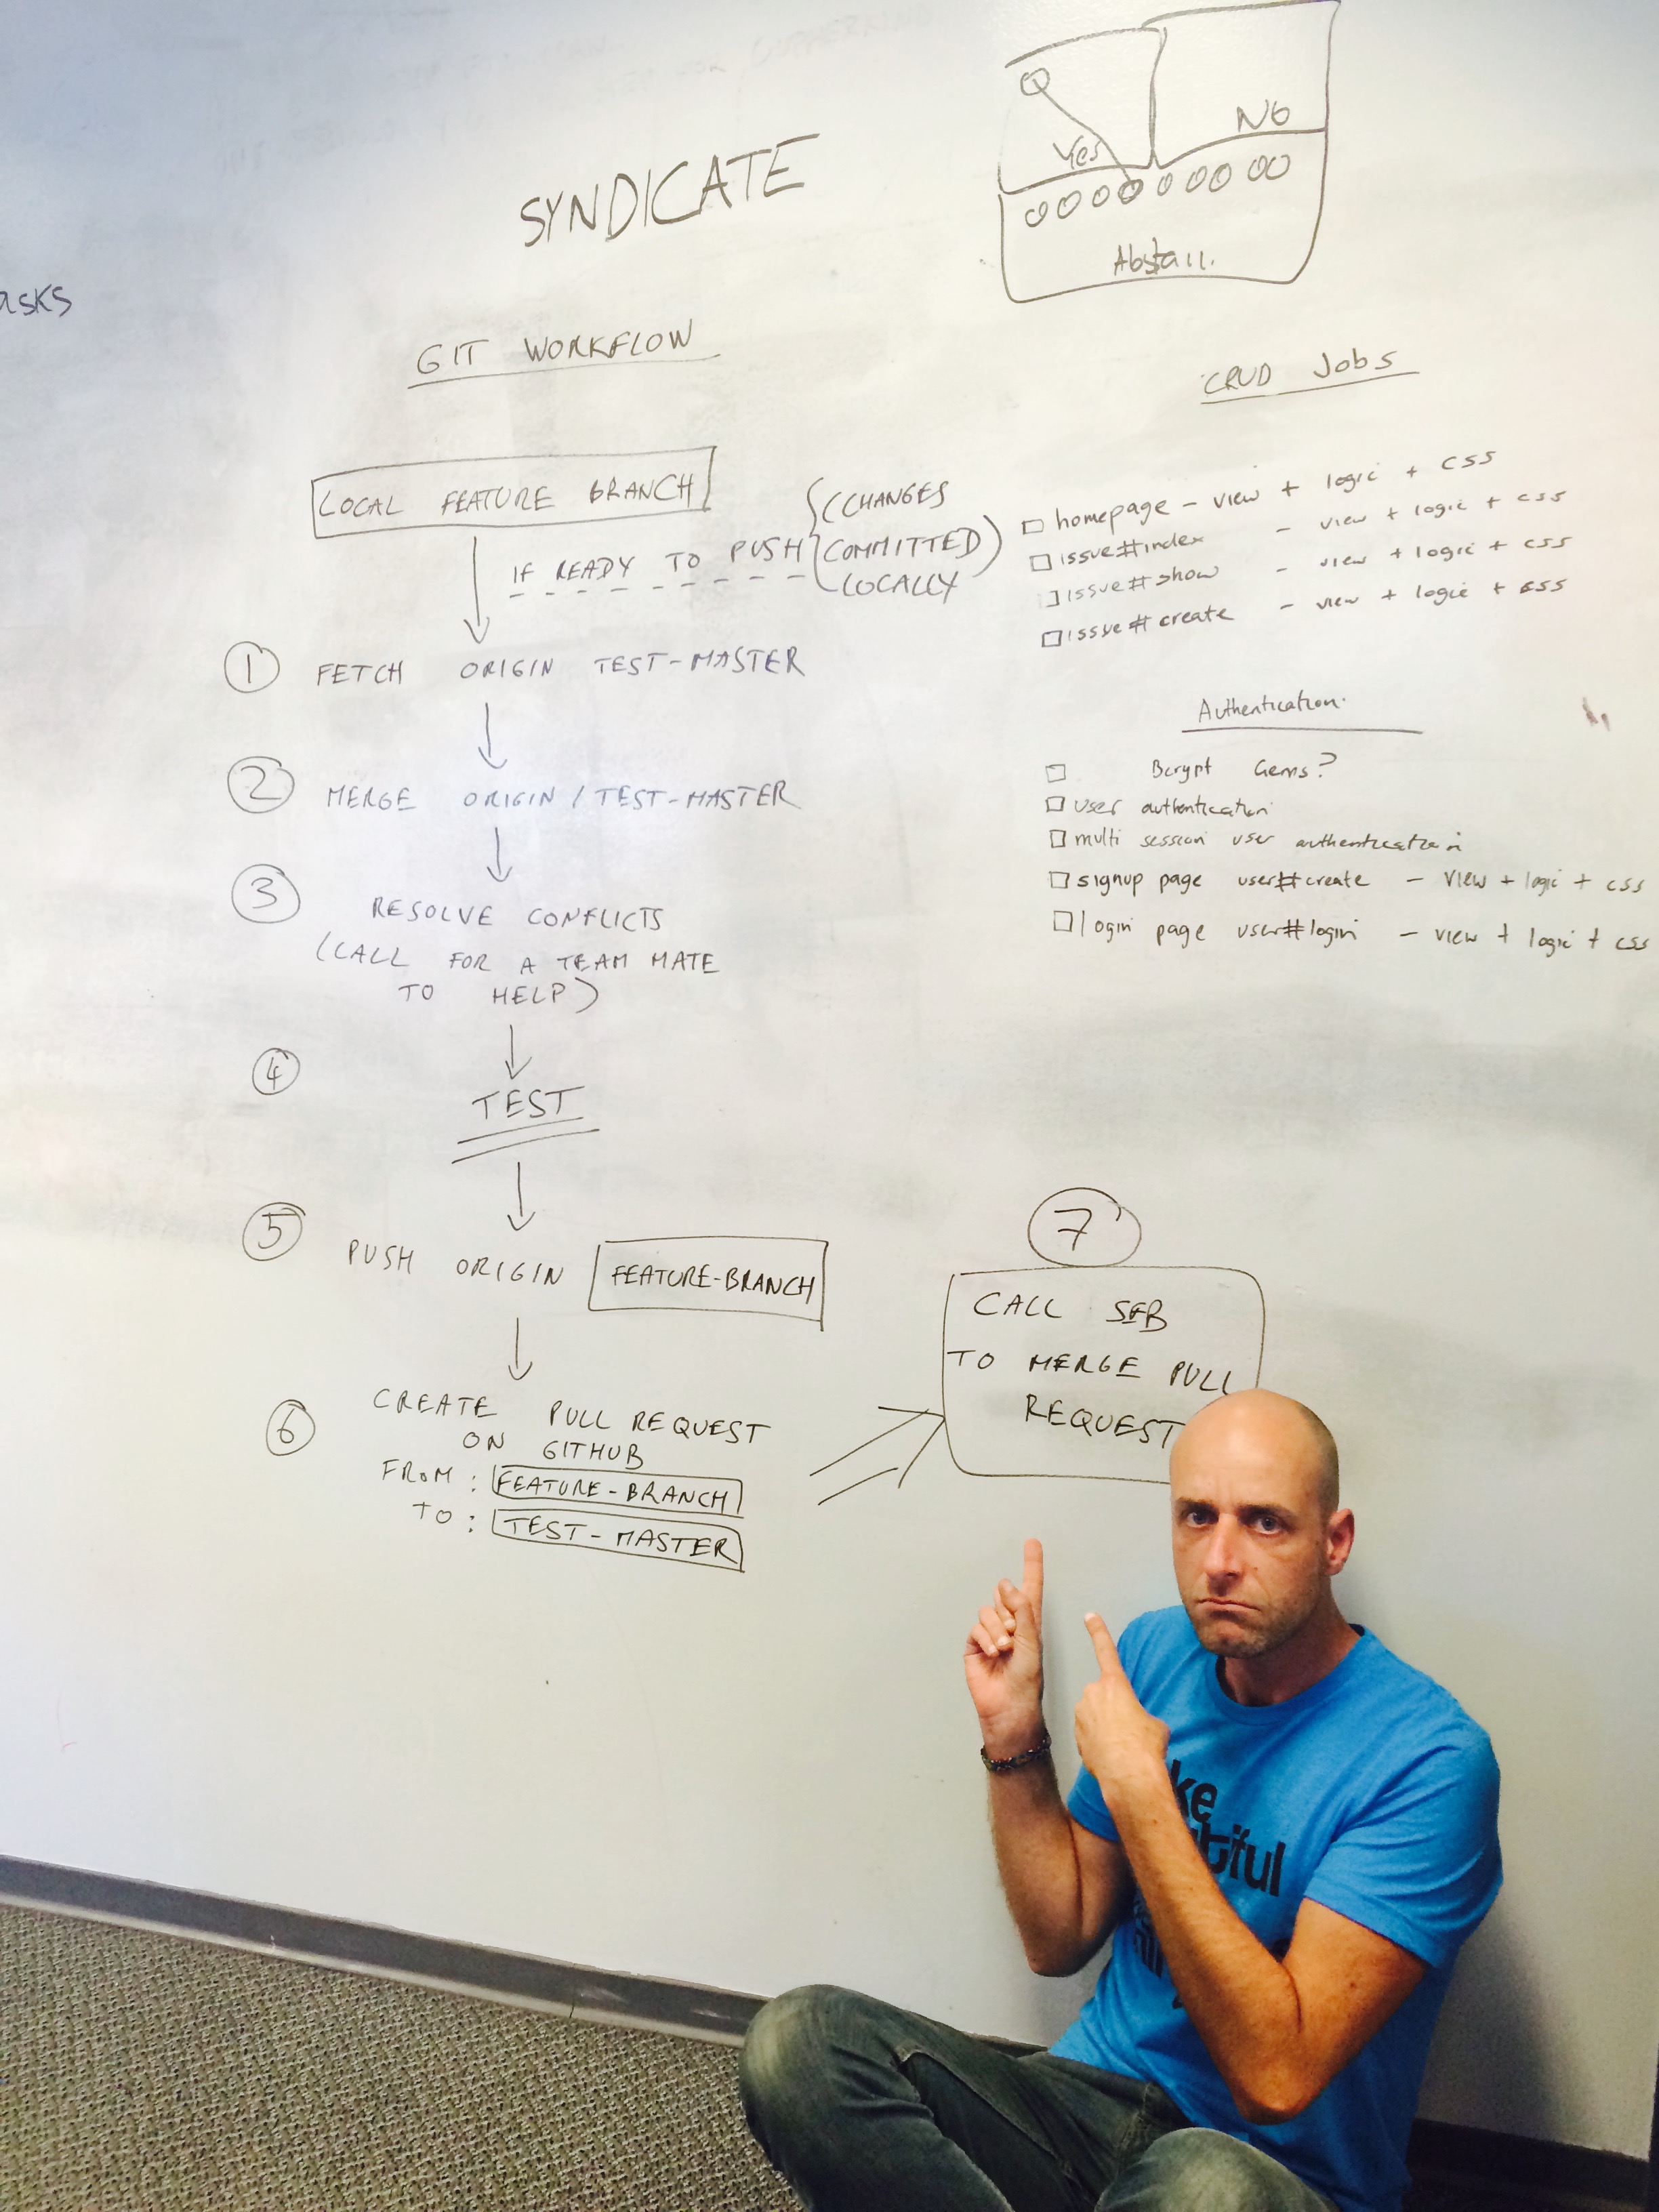 SYNDICATE
Q
Yes
NO
Abstain.
GIT WORKFLOW
LOCAL FEATURE BRANCH
IF READY TO PUSH
(CHANGES
COMMITTED)
LOCALLY
1 FETCH ORIGIN TEST-MASTER
2 MERGE ORIGIN / TEST-MASTER
3 RESOLVE CONFLICTS
(CALL FOR A TEAM MATE
TO HELP)
4 TEST
5 PUSH ORIGIN FEATURE-BRANCH
6 CREATE PULL REQUEST
ON GITHUB
FROM : FEATURE-BRANCH
TO : TEST-MASTER
7
CALL SEB
TO MERGE PULL
REQUEST
CRUD Jobs
homepage - view + logic + css
issue#index - view + logic + css
issue#show - view + logic + css
issue#create - view + logic + css
Authentication.
Bcrypt Gems?
user authentication
multi session user authentication
signup page user#create - view + logic + css
login page user#login - view + logic + css